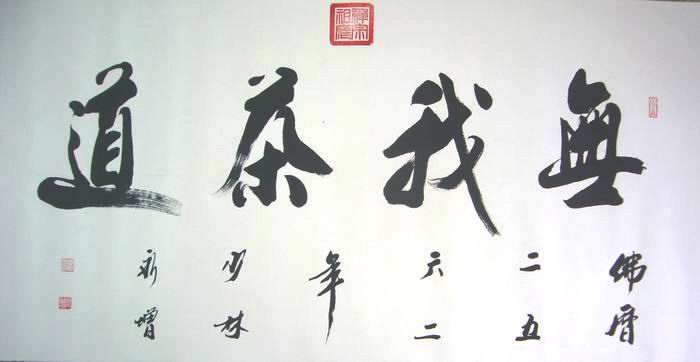 禪宗祖庭
無我茶道
佛曆
二五
六二
年
少林